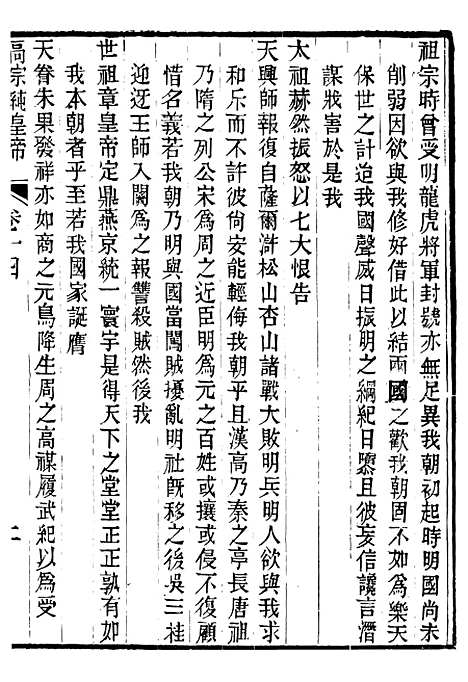 祖宗時曾受明龍虎將軍封號亦無足異我朝初起時明國尚未
削弱因欲與我修好借此以結兩國之歡我朝固不如為樂天
保世之計迨我國聲威日振明之綱紀日隳且彼妄信讒言潛
謀戕害於是我
太祖赫然振怒以七大恨告
天興師報復自薩爾滸松山杏山諸戰大敗明兵明人欲與我求
和斥而不許彼尚安能輕侮我朝乎且漢高乃秦之亭長唐祖
乃隋之列公宋為周之近臣明為元之百姓或攘或侵不復顧
惜名義若我朝乃明與國當闖賊擾亂明社旣移之後吳三桂
迎迓王師入關為之報讐殺賊然後我
世祖章皇帝定鼎燕京統一寰宇是得天下之堂堂正正孰有如
我本朝者乎至若我國家誕膺
天眷朱果發祥亦如商之元鳥降生周之高禖履武紀以為受
高宗純皇帝 卷十四 二